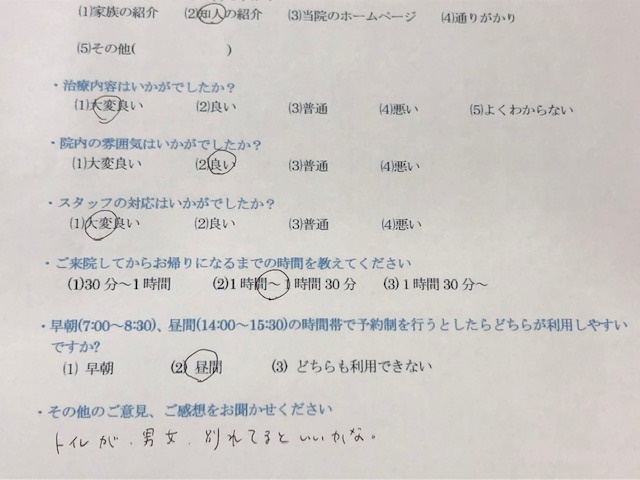 (1)家族の紹介 (2)知人の紹介 (3)当院のホームページ (4)通りがかり
(5)その他( )
・治療内容はいかがでしたか？
(1)大変良い (2)良い (3)普通 (4)悪い (5)よくわからない
・院内の雰囲気はいかがでしたか？
(1)大変良い (2)良い (3)普通 (4)悪い
・スタッフの対応はいかがでしたか？
(1)大変良い (2)良い (3)普通 (4)悪い
・ご来院してからお帰りになるまでの時間を教えてください
(1)30分～1時間 (2)1時間～1時間30分 (3)1時間30分～
・早朝(7:00～8:30)、昼間(14:00～15:30)の時間帯で予約制を行うとしたらどちらが利用しやすい
ですか?
(1) 早朝 (2) 昼間 (3) どちらも利用できない
・その他のご意見、ご感想をお聞かせください
トイレが、男女、別れてるといいかな。